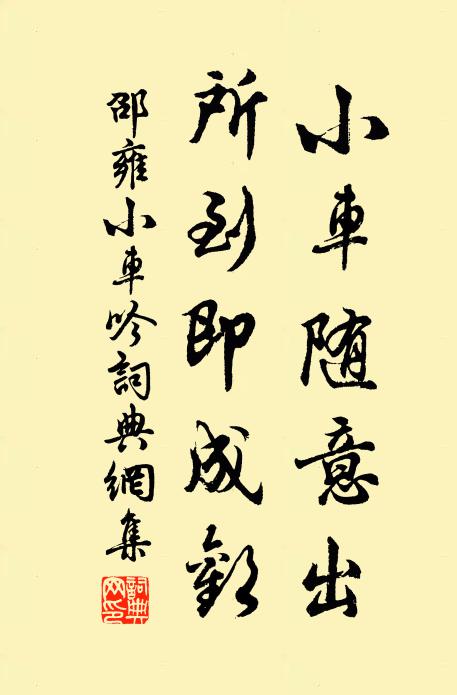 小車随意出
所到即成歡
邵雍小車吟詞典網集
詞典網印